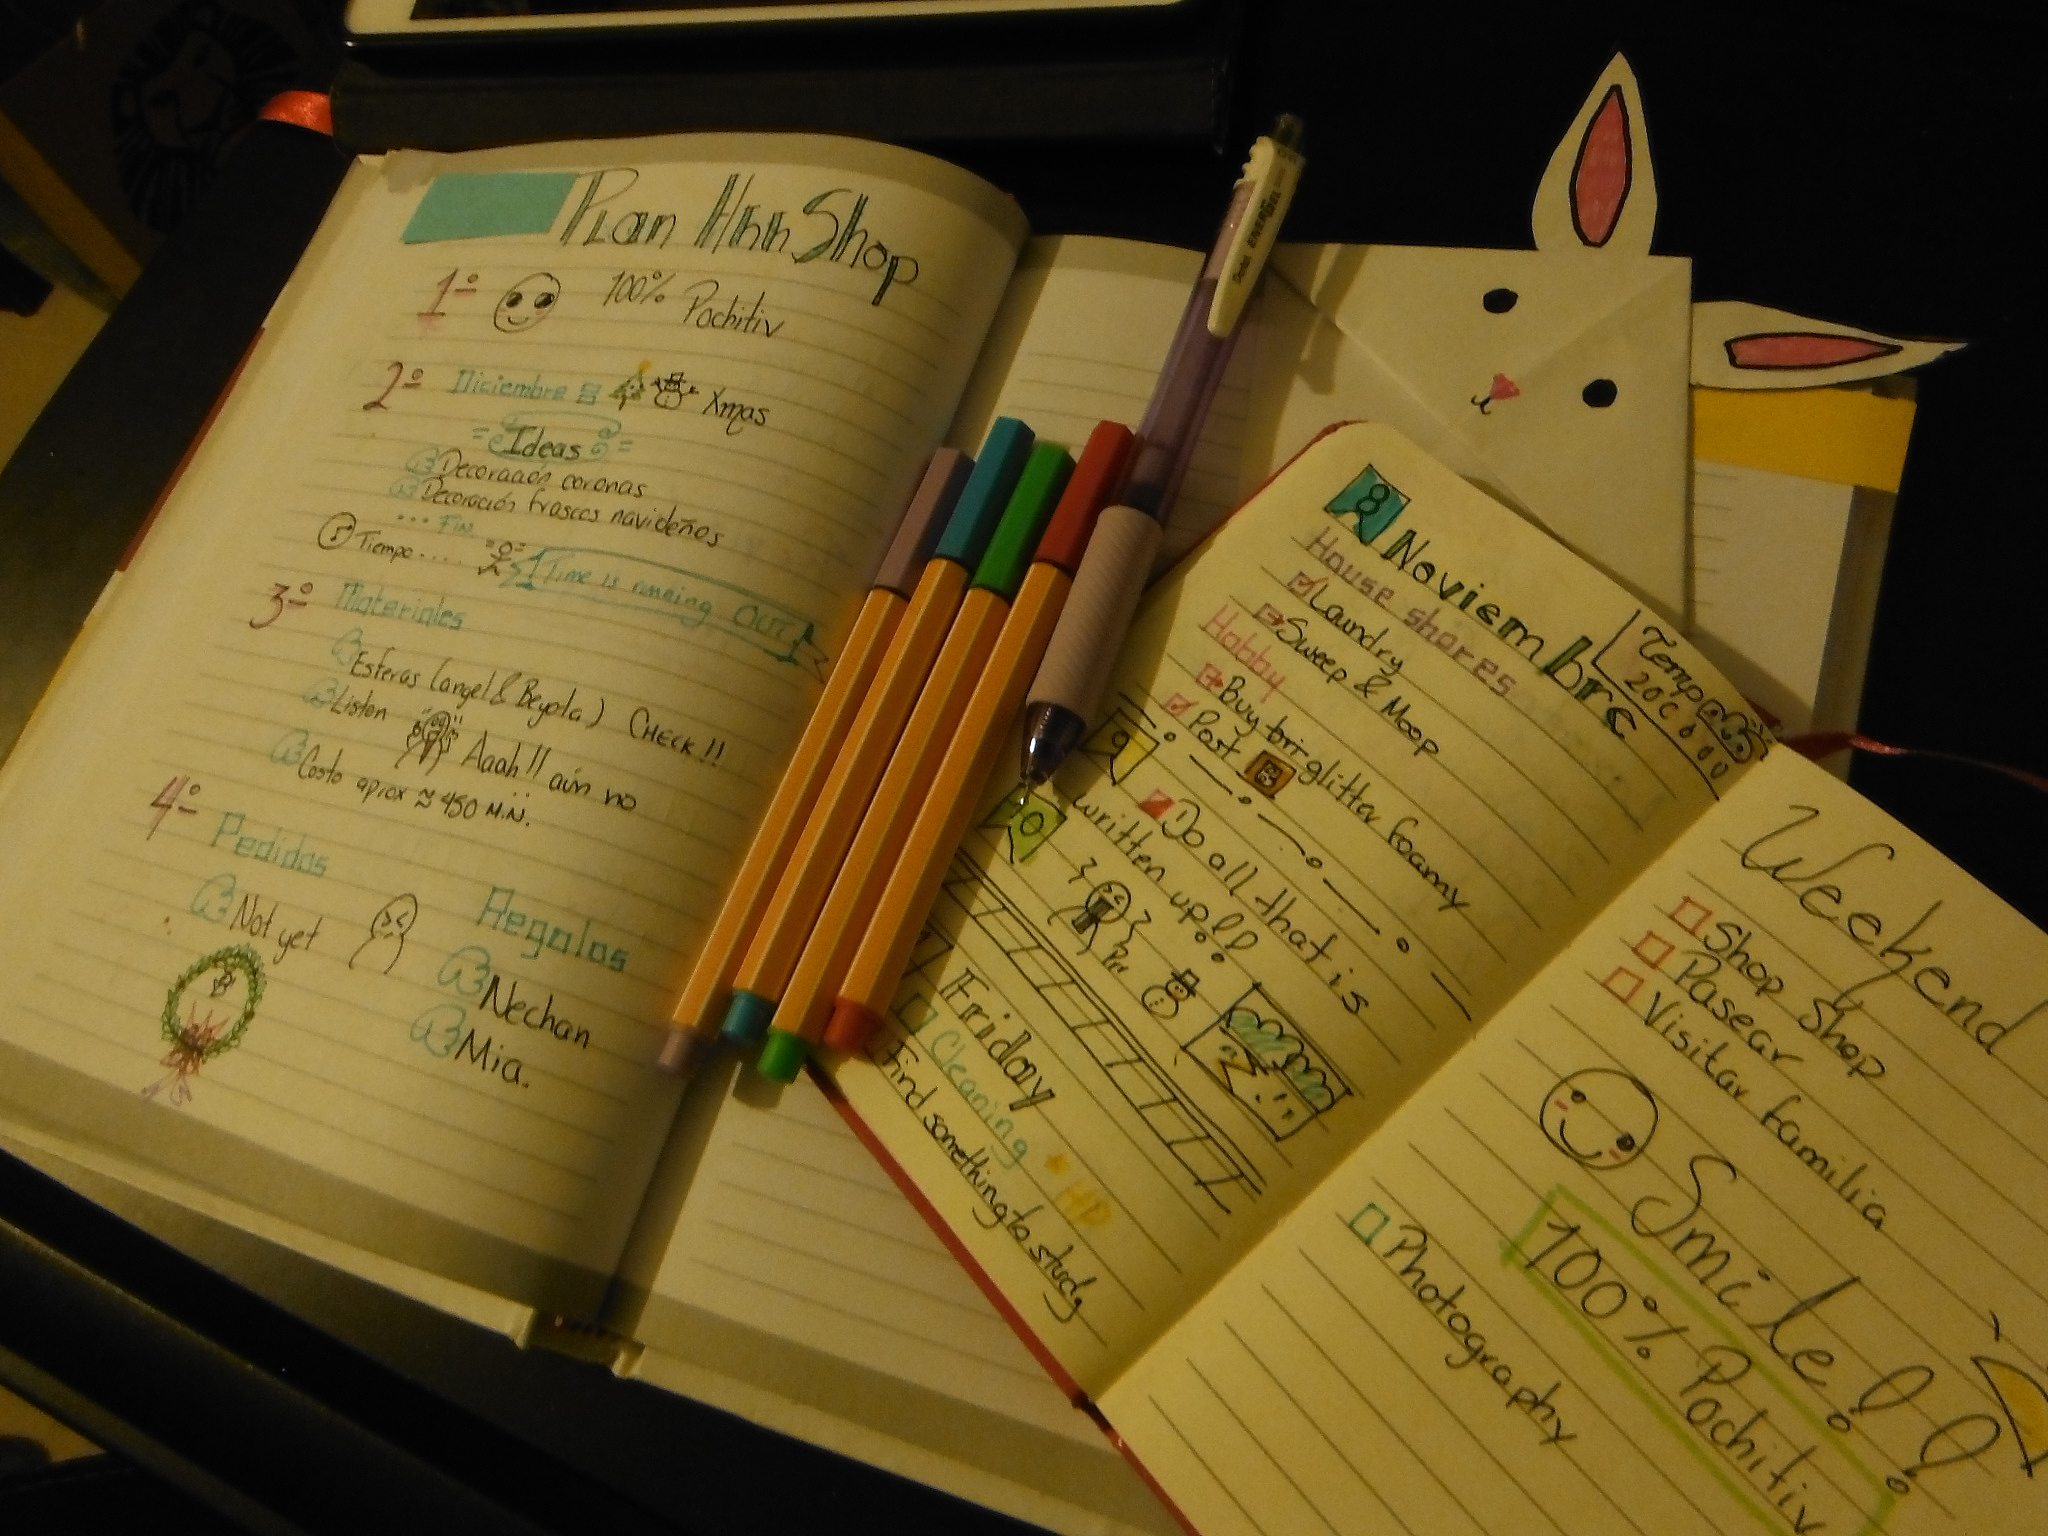 Plan Hhh Shop
1º 100% Pochitiv
2º Diciembre Xmas
Ideas
Decoración coronas
Decoración frascos navideños
... Fin
Tiempo.... Time is running OUT!
3º Materiales
Esferas (angel & Beyota) CHECK!!
Listen Aaah!! aún no
Costo aprox ≈ 450 M.N.
4º Pedidos
Not yet
Regalos
Nechan
Mia.
Pentel ENERGEL
8 Noviembre
Temp
20C
House shores
Laundry
Sweep & Moop
Hobby
Buy bri glitter foamy
Post
9
Do all that is
written up!!
10
Friday
Cleaning
HD
Find something to study
Weekend
Shop Shop
Pasear
Visitar familia
Smile!!
100% Pochitiv
Photography